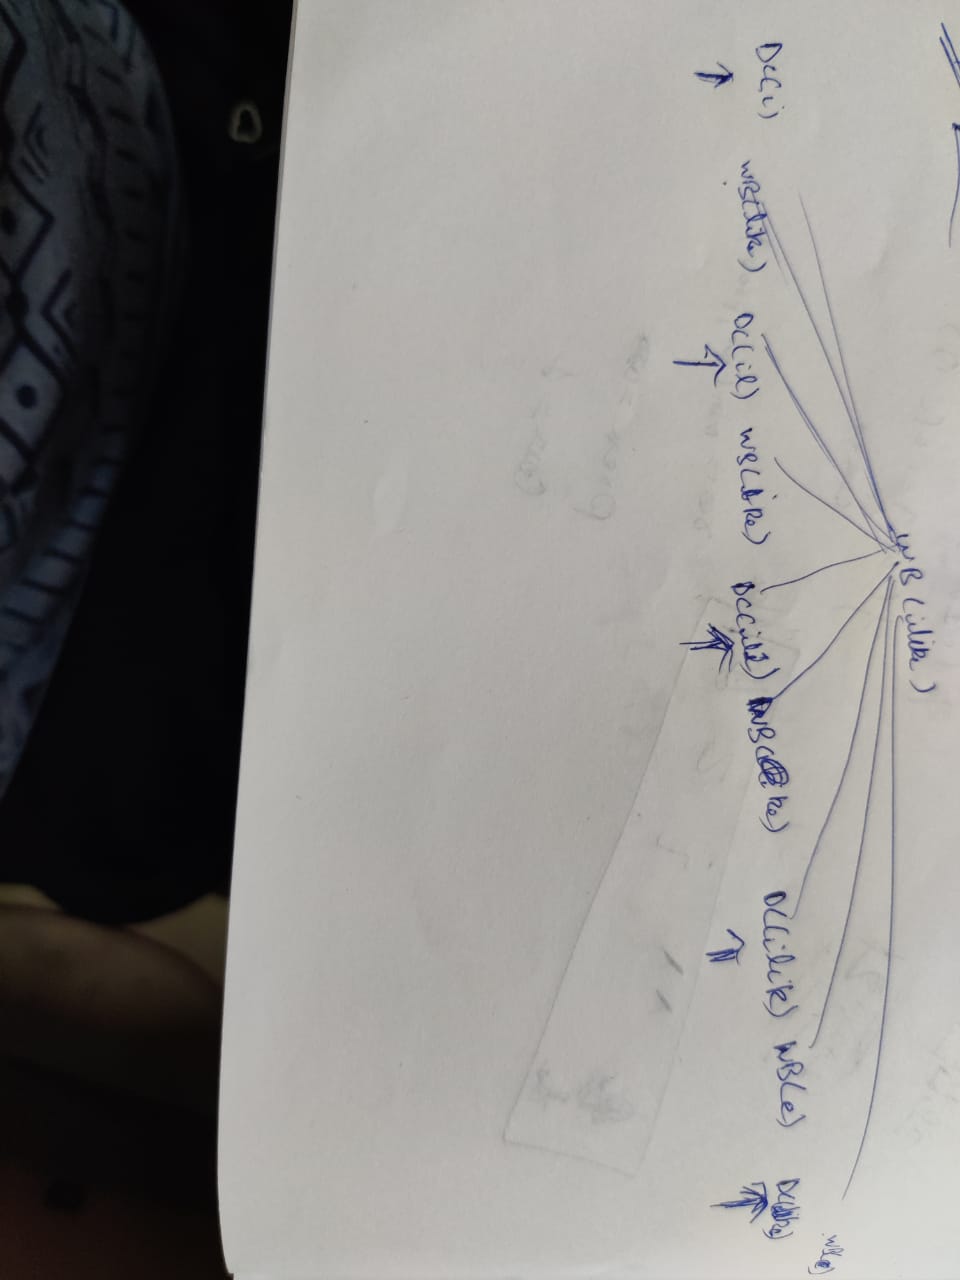 WB (ilike)
DC(i) WB(like) DC(il) WB(ike) DC(ili) WB(ke) DC(ilik) WB(e) DC(ilike)